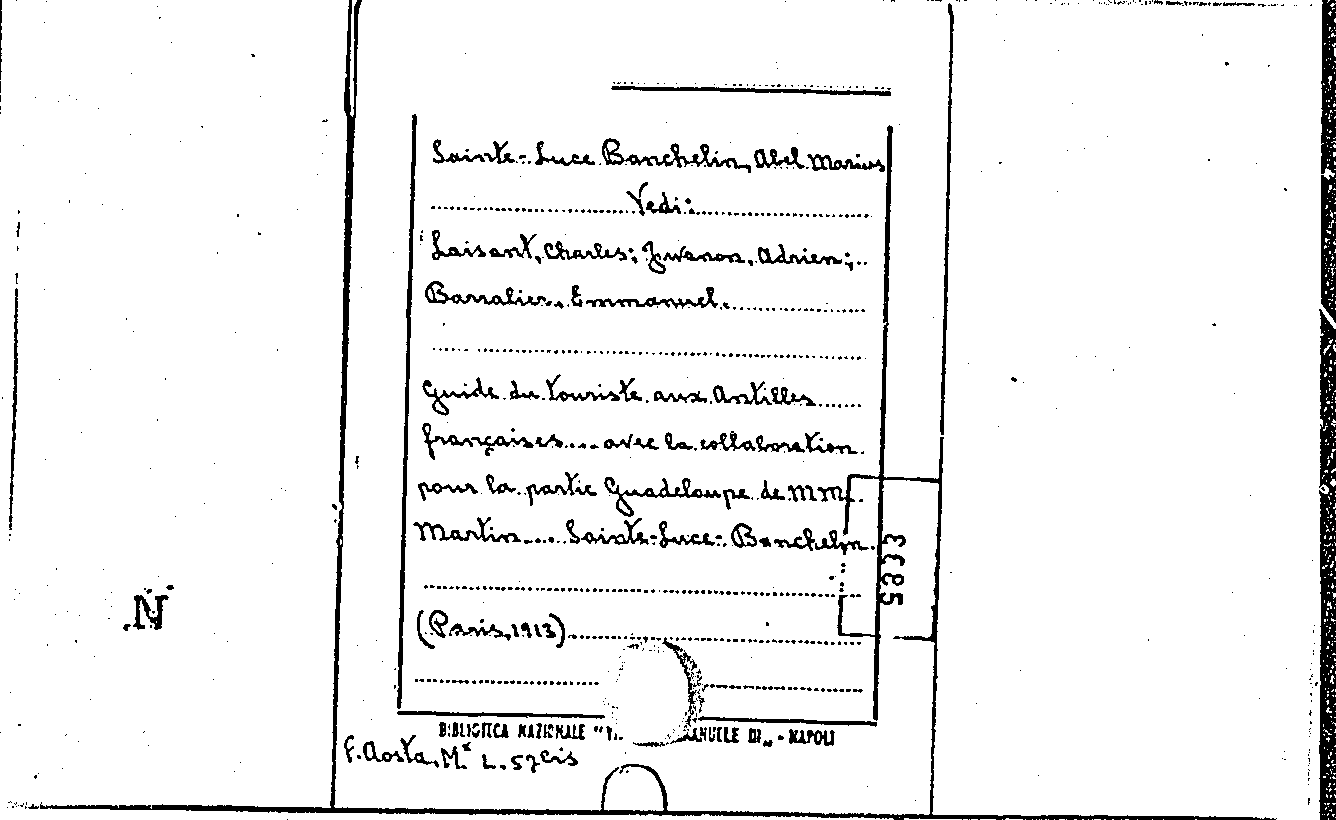 Sainte-Luce Banchelin, Abel Marius
Vedi:
Laisant, Charles; Juvanon, Adrien;
Barralier, Emmanuel.
Guide du touriste aux Antilles
françaises.... avec la collaboration
pour la partie Guadeloupe de MM.
Martin.... Sainte-Luce-Banchelin.
(Paris, 1913)
5833
N
BIBLIOTECA NAZIONALE "VI ANUELE III„ - NAPOLI
F. Aosta, Mx L. 57